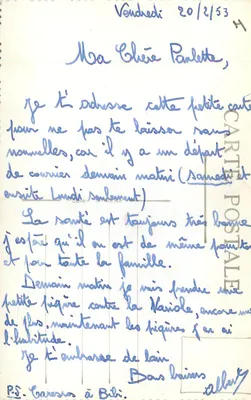 Vendredi 20/2/53
Ma Chère Paulette,
Je t'adresse cette petite carte
pour ne pas te laisser sans
nouvelles, car il y a un départ
de courrier demain matin (samedi et
ensuite lundi seulement)
La santé est toujours très bonne
j'espère qu'il en est de même pour toi
et pour toute la famille.
Demain matin je vais prendre une
petite piqûre contre la Variole, encore une
de plus, maintenant les piqûres j'en ai
l'habitude.
Je t'embrasse de loin
Bons baisers
Albert
P.S. Caresses à Bibi.
CARTE POSTALE